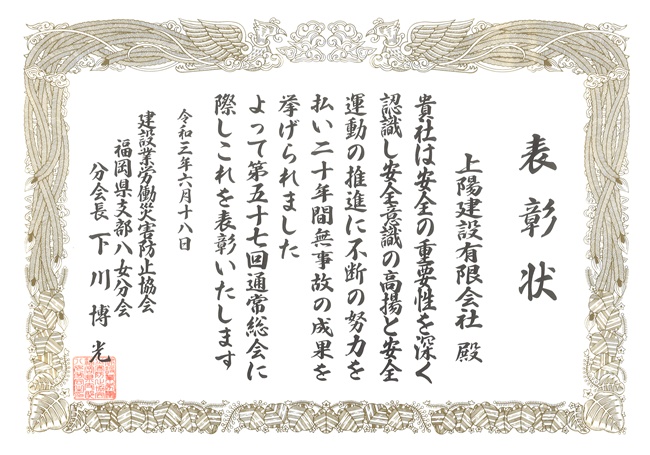 表彰状
上陽建設有限会社 殿
貴社は安全の重要性を深く
認識し安全意識の高揚と安全
運動の推進に不断の努力を
払い二十年間無事故の成果を
挙げられました
よって第五十七回通常総会に
際しこれを表彰いたします
令和三年六月十八日
建設業労働災害防止協会
福岡県支部八女分会
分会長 下川博光